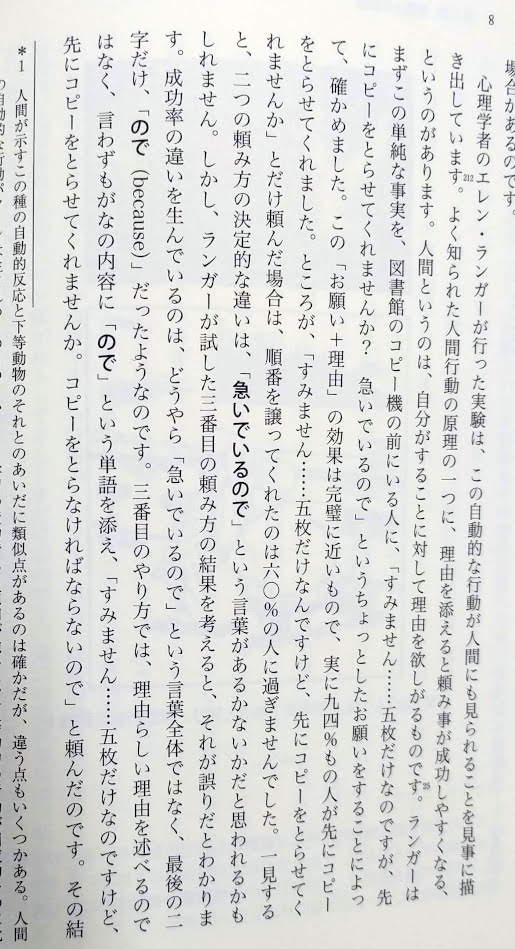 8
場合があるのです。
心理学者のエレン・ランガーが行った実験は、この自動的な行動が人間にも見られることを見事に描
き出しています。212 よく知られた人間行動の原理の一つに、理由を添えると頼み事が成功しやすくなる、
というのがあります。人間というのは、自分がすることに対して理由を欲しがるものです。25 ランガーは
まずこの単純な事実を、図書館のコピー機の前にいる人に、「すみません……五枚だけなのですが、先
にコピーをとらせてくれませんか? 急いでいるので」というちょっとしたお願いをすることによっ
て、確かめました。この「お願い+理由」の効果は完璧に近いもので、実に九四%もの人が先にコピー
をとらせてくれました。ところが、「すみません……五枚だけなんですけど、先にコピーをとらせてく
れませんか」とだけ頼んだ場合は、順番を譲ってくれたのは六〇%の人に過ぎませんでした。一見する
と、二つの頼み方の決定的な違いは、「急いでいるので」という言葉があるかないかだと思われるかも
しれません。しかし、ランガーが試した三番目の頼み方の結果を考えると、それが誤りだとわかりま
す。成功率の違いを生んでいるのは、どうやら「急いでいるので」という言葉全体ではなく、最後の二
字だけ、「ので (because)」だったようなのです。三番目のやり方では、理由らしい理由を述べるので
はなく、言わずもがなの内容に「ので」という単語を添え、「すみません……五枚だけなのですけど、
先にコピーをとらせてくれませんか。コピーをとらなければならないので」と頼んだのです。その結
*1 人間が示すこの種の自動的反応と下等動物のそれとのあいだに類似点があるのは確かだが、違う点もいくつかある。人間